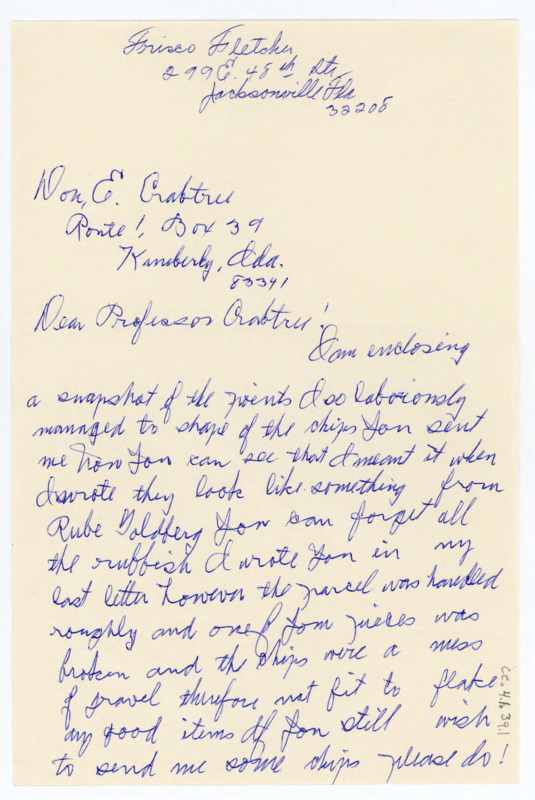 Frisco Fletcher
299 E. 48th Str.
Jacksonville Fla
32208
Don, E. Crabtree
Route 1, Box 39
Kimberly, Ida.
83341
Dear Professor Crabtree!
I am enclosing
a snapshot of the points I so laboriously
managed to shape of the chips you sent
me now you can see that I meant it when
I wrote they look like something from
Rube Goldberg you can forget all
the rubbish I wrote you in my
last letter however the parcel was handled
roughly and one of your pieces was
broken and the chips were a mess
of gravel therefore not fit to flake
any good items If you still wish
to send me some chips please do!